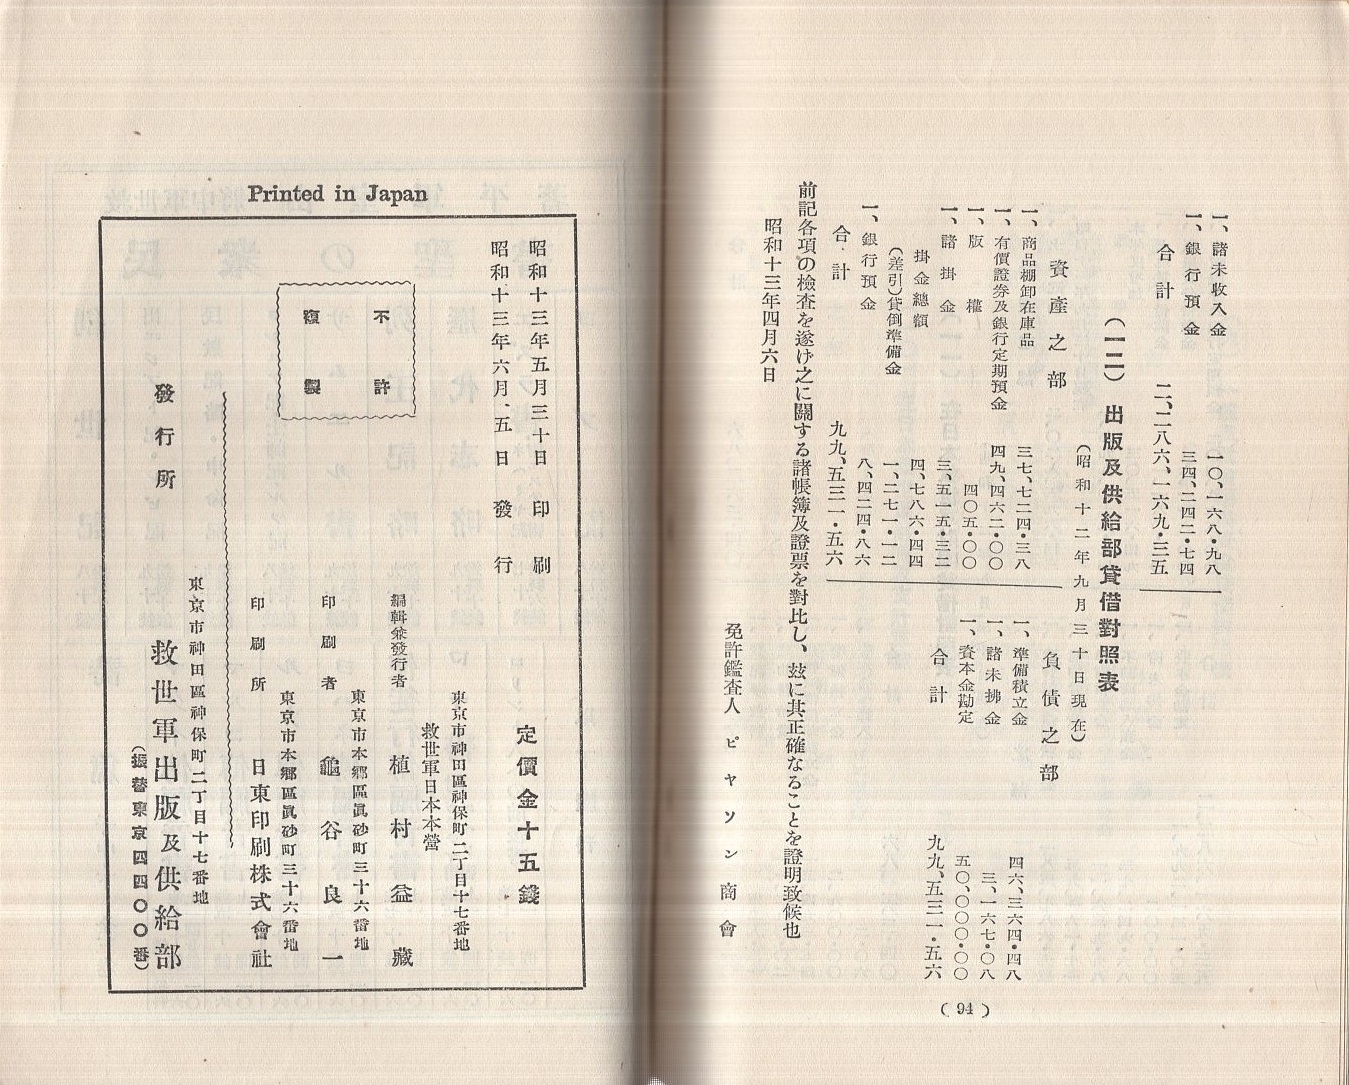 一、諸未收入金 一〇、一六八・九八
一、銀行預金 三四、二四二・七四
合計 二、二八六、一六九・三五
(一二) 出版及供給部貸借對照表
(昭和十二年九月三十日現在)
資產之部
一、商品棚卸在庫品 三七、七二四・三八
一、有價證券及銀行定期預金 四九、四六二・〇〇
一、版權 四〇五・〇〇
一、諸掛金 三、五一五・三二
掛金總額 四、七八六・四四
(差引)貸倒準備金 一、二七一・一二
一、銀行預金 八、四二四・八六
合計 九九、五三一・五六
負債之部
一、準備積立金 四六、三六四・四八
一、諸未拂金 三、一六七・〇八
一、資本金勘定 五〇、〇〇〇・〇〇
合計 九九、五三一・五六
前記各項の檢査を遂げ之に關する諸帳簿及證票を對比し、玆に其正確なることを證明致候也
昭和十三年四月六日
免許鑑査人 ピヤソン商會
(94)
Printed in Japan
昭和十三年五月三十日 印刷
昭和十三年六月五日 發行
定價金十五錢
不許
複製
東京市神田區神保町二丁目十七番地
救世軍日本本營
編輯兼發行者 植村益藏
東京市本鄕區眞砂町三十六番地
印刷者 龜谷良一
東京市本鄕區眞砂町三十六番地
印刷所 日東印刷株式會社
東京市神田區神保町二丁目十七番地
發行所 救世軍出版及供給部
(振替東京四四〇〇番)